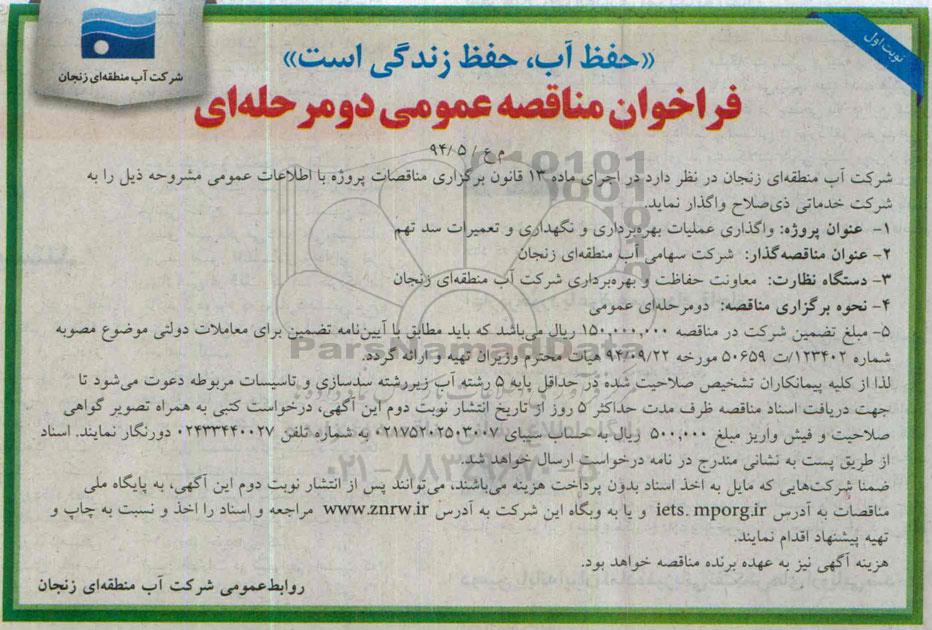 نوبت اول
شرکت آب منطقه‌ای زنجان
«حفظ آب، حفظ زندگی است»
فراخوان مناقصه عمومی دومرحله‌ای
م ع / ۹۴/۵
شرکت آب منطقه‌ای زنجان در نظر دارد در اجرای ماده ۱۳ قانون برگزاری مناقصات پروژه با اطلاعات عمومی مشروحه ذیل را به
شرکت خدماتی ذی‌صلاح واگذار نماید.
۱- عنوان پروژه: واگذاری عملیات بهره‌برداری و نگهداری و تعمیرات سد تهم
۲- عنوان مناقصه‌گذار: شرکت سهامی آب منطقه‌ای زنجان
۳- دستگاه نظارت: معاونت حفاظت و بهره‌برداری شرکت آب منطقه‌ای زنجان
۴- نحوه برگزاری مناقصه: دومرحله‌ای عمومی
۵- مبلغ تضمین شرکت در مناقصه ۱۵۰,۰۰۰,۰۰۰ ریال می‌باشد که باید مطابق با آیین‌نامه تضمین برای معاملات دولتی موضوع مصوبه
شماره ۱۲۳۴۰۲/ت ۵۰۶۵۹ مورخه ۹۴/۰۹/۲۲ هیأت محترم وزیران تهیه و ارائه گردد.
لذا از کلیه پیمانکاران تشخیص صلاحیت شده در حداقل پایه ۵ رشته آب زیررشته سدسازی و تاسیسات مربوطه دعوت می‌شود تا
جهت دریافت اسناد مناقصه ظرف مدت حداکثر ۵ روز از تاریخ انتشار نوبت دوم این آگهی، درخواست کتبی به همراه تصویر گواهی
صلاحیت و فیش واریز مبلغ ۵۰۰,۰۰۰ ریال به حساب سیبای ۰۲۱۷۵۲۰۲۵۰۳۰۰۷ به شماره تلفن ۰۲۴۳۳۴۴۰۰۲۷ دورنگار نمایند. اسناد
از طریق پست به نشانی مندرج در نامه درخواست ارسال خواهد شد.
ضمنا شرکت‌هایی که مایل به اخذ اسناد بدون پرداخت هزینه می‌باشند، می‌توانند پس از انتشار نوبت دوم این آگهی، به پایگاه ملی
مناقصات به آدرس iets. mporg.ir و یا به وبگاه این شرکت به آدرس www.znrw.ir مراجعه و اسناد را اخذ و نسبت به چاپ و
تهیه پیشنهاد اقدام نمایند.
هزینه آگهی نیز به عهده برنده مناقصه خواهد بود.
روابط‌عمومی شرکت آب منطقه‌ای زنجان
ParsNamadData